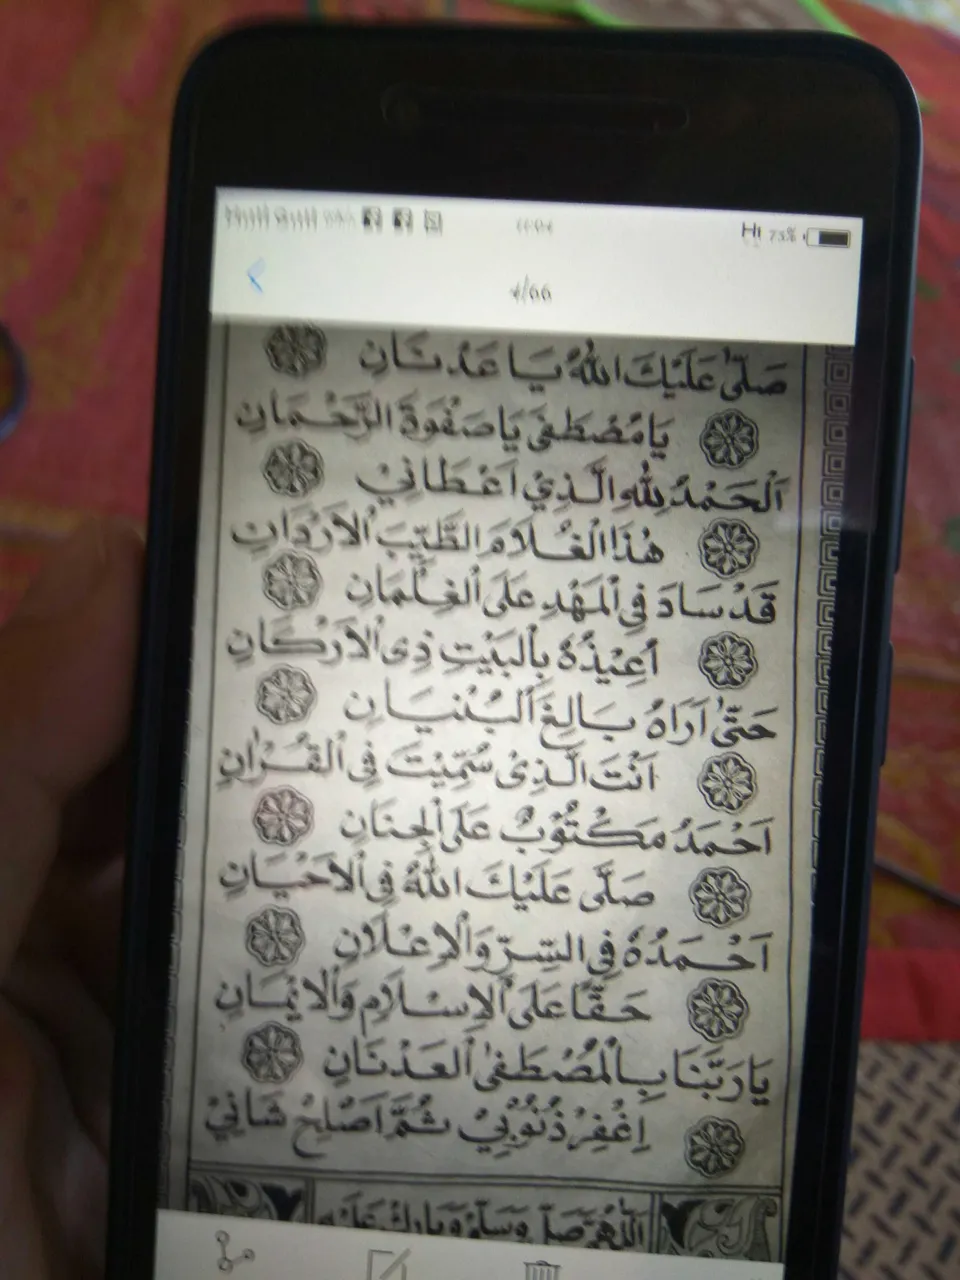 HI 73%
4/66
صَلّٰى عَلَيْكَ اللّٰهُ يَا عَدْنَانِ
يَا مُصْطَفٰى يَا صَفْوَةَ الرَّحْمَانِ
اَلْحَمْدُ لِلّٰهِ الَّذِيْ اَعْطَانِيْ
هٰذَا الْغُلَامَ الطَّيِّبَ الْاَرْدَانِ
قَدْ سَادَ فِى الْمَهْدِ عَلَى الْغِلْمَانِ
اُعِيْذُهُ بِالْبَيْتِ ذِى الْاَرْكَانِ
حَتّٰى اَرَاهُ بَالِغَ الْبُنْيَانِ
اَنْتَ الَّذِىْ سُمِّيْتَ فِى الْقُرْاٰنِ
اَحْمَدُ مَكْتُوْبٌ عَلَى الْجِنَانِ
صَلَّى عَلَيْكَ اللّٰهُ فِى الْاَحْيَانِ
اَحْمَدُهُ فِى السِّرِّ وَالْاِعْلَانِ
حَقًّا عَلَى الْاِسْلَامِ وَالْاِيْمَانِ
يَا رَبَّنَا بِالْمُصْطَفٰى الْعَدْنَانِ
اِغْفِرْ ذُنُوْبِيْ ثُمَّ اَصْلِحْ شَانِيْ
اَللّٰهُمَّ صَلِّ وَسَلِّمْ وَبَارِكْ عَلَيْهِ